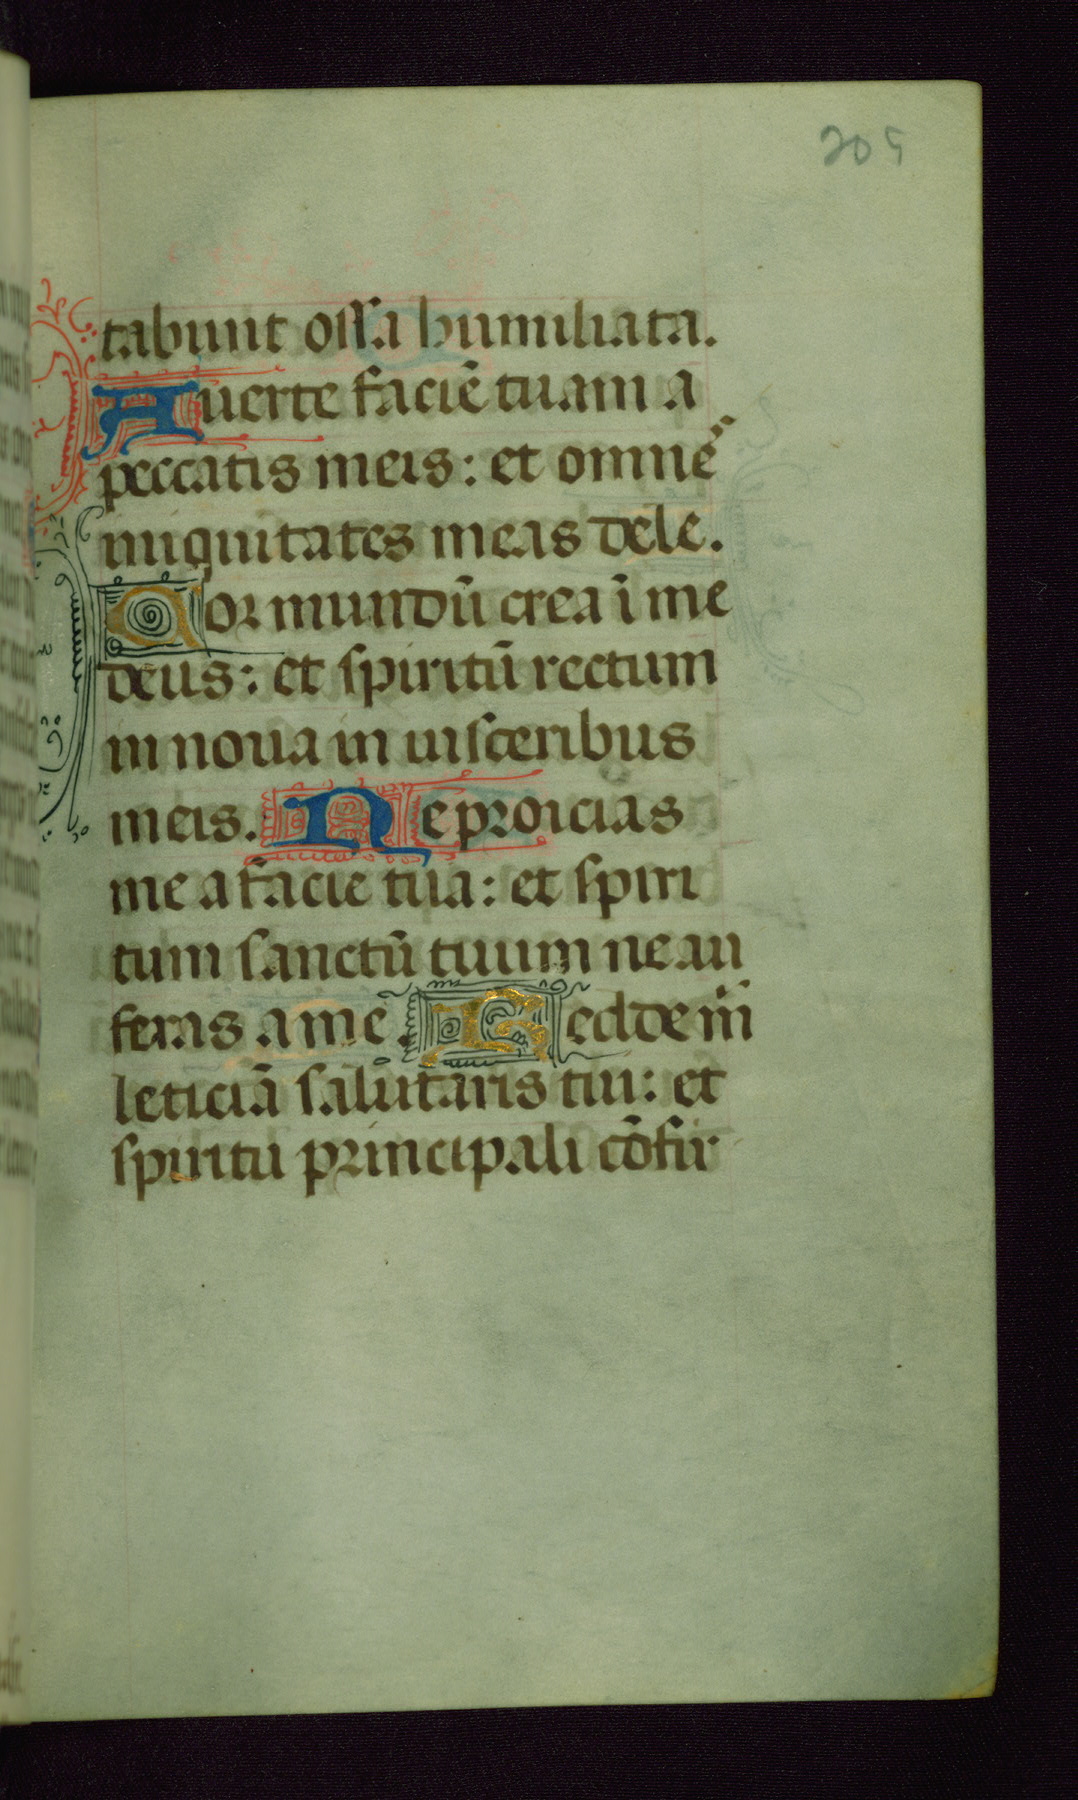 205
tabunt ossa humiliata.
Auerte faciē tuam a
peccatis meis: et omnēs
iniquitates meas dele.
Cor mundū crea ī me
deus: et spiritū rectum
in noua in uisceribus
meis. Ne proicias
me a facie tua: et spiri
tum sanctū tuum ne au
feras a me. Redde m̄i
leticiā salutaris tui: et
spiritu principali cōfir